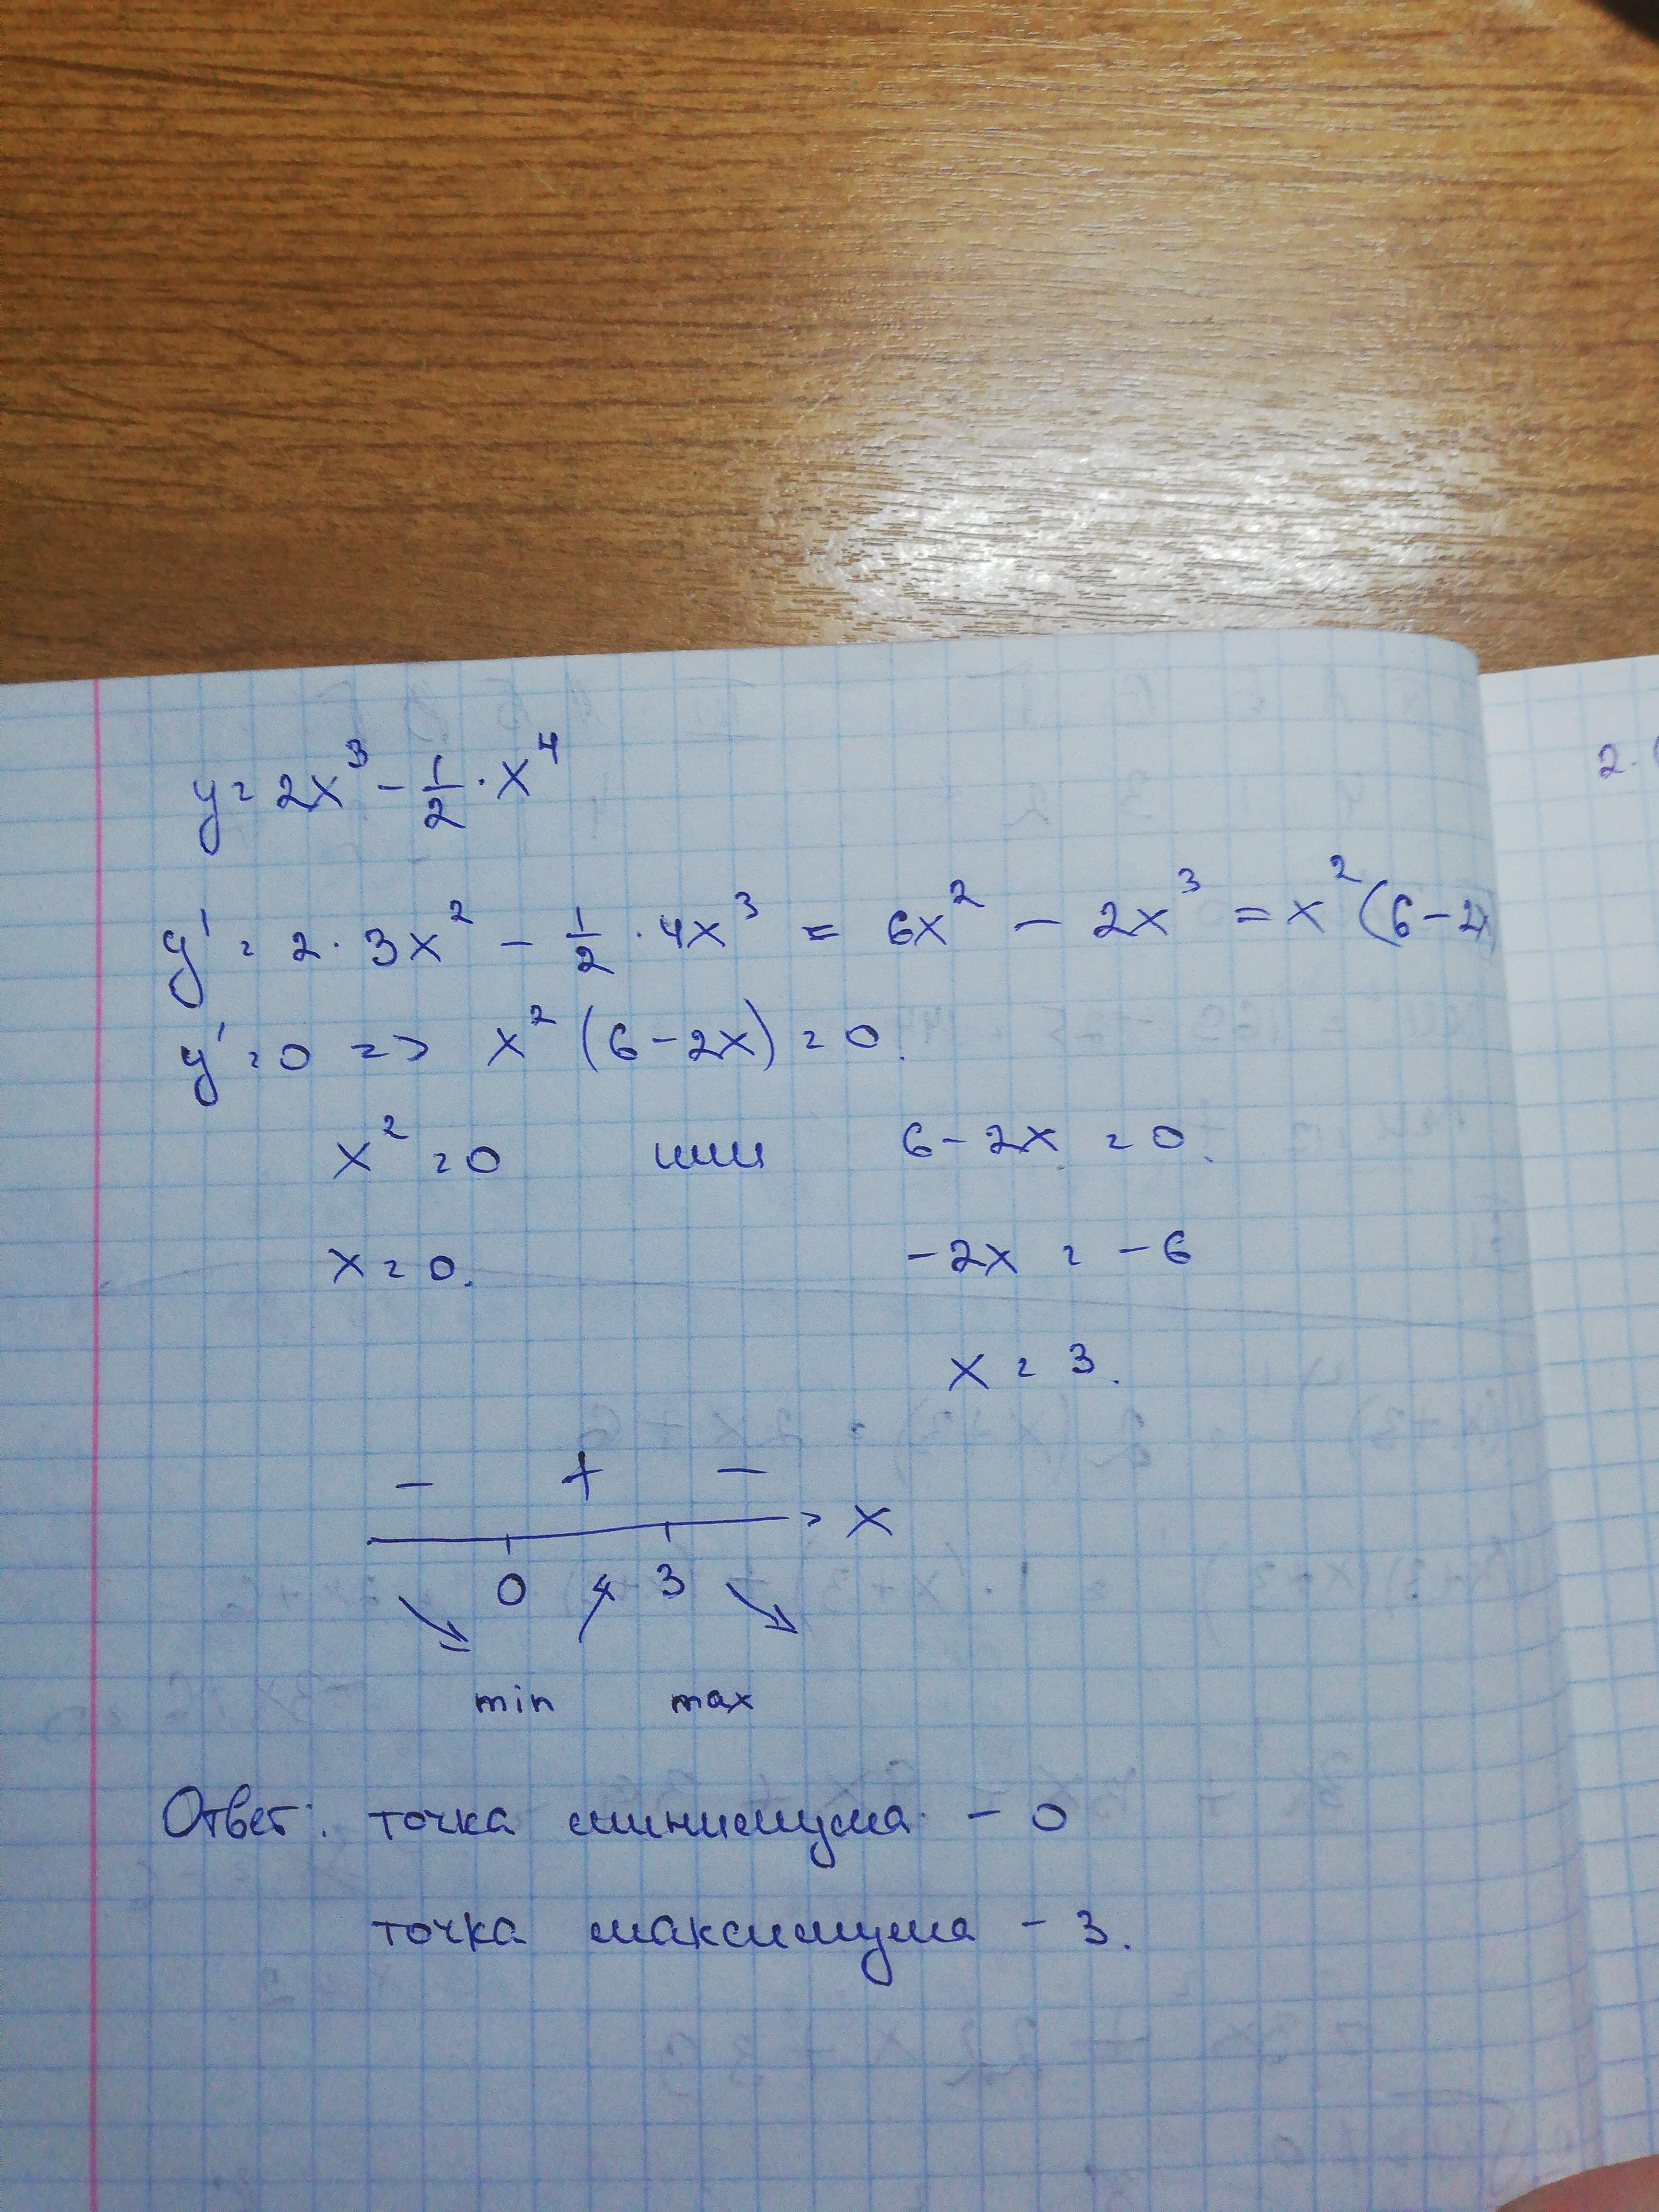 y = 2x³ - 1/2 · x⁴
y' = 2 · 3x² - 1/2 · 4x³ = 6x² - 2x³ = x²(6 - 2x
y' = 0 => x²(6 - 2x) = 0.
x² = 0 или 6 - 2x = 0.
x = 0. -2x = -6
x = 3.
- + -
x
0 3
min max
Ответ: точка минимума - 0
точка максимума - 3.
2.